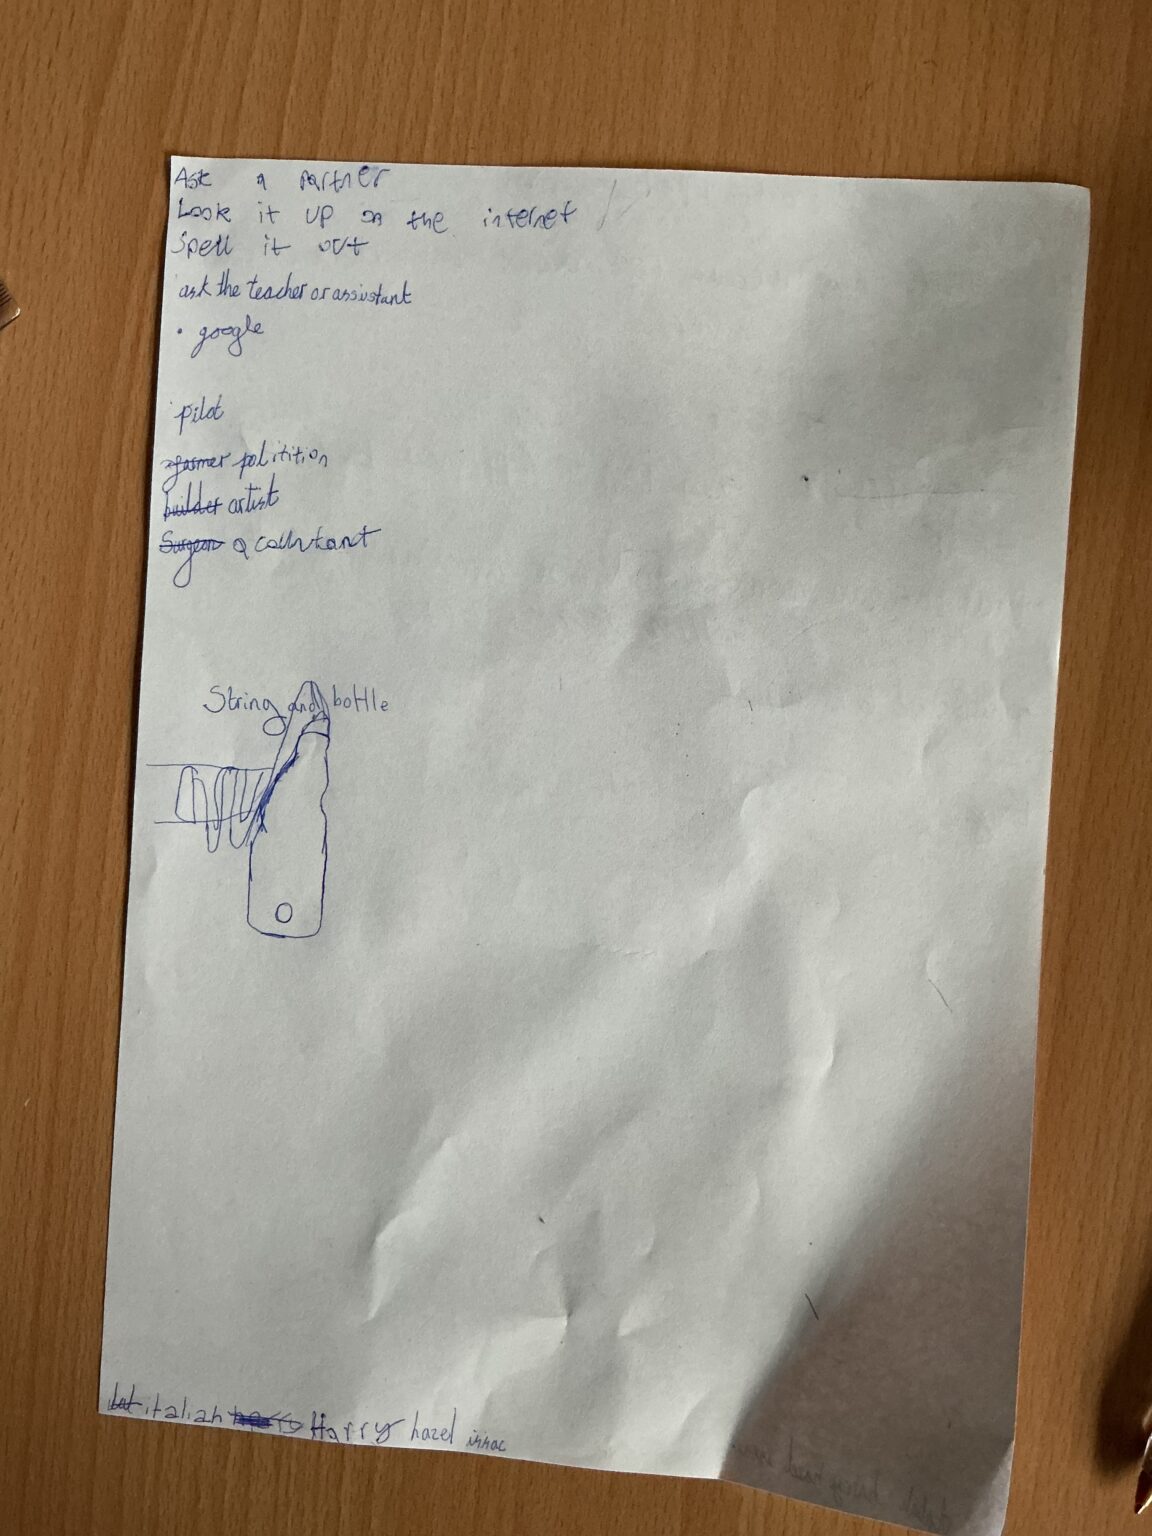 Ask a partner
Look it up on the internet
Spell it out
ask the teacher or assistant
• google
pilot
farmer politition
builder artist
Surgeon acountant
String and bottle
italian Harry hazel issac